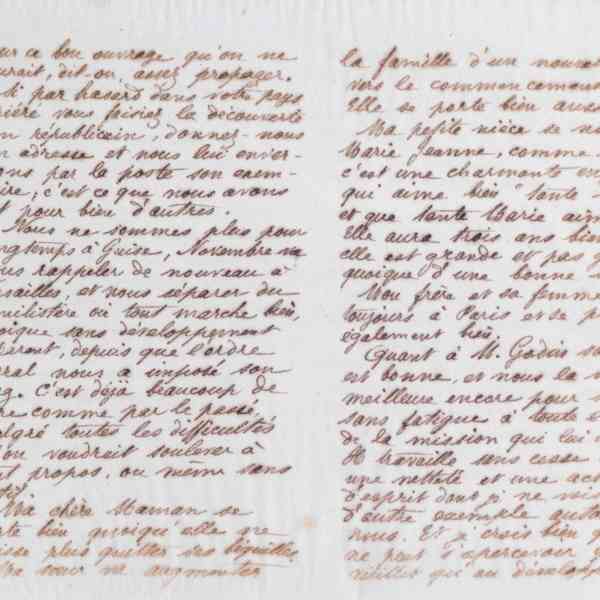 ur ce bon ouvrage qu'on ne
urait, dit-on, assez propager.
Si par hasard dans votre pays
riéré vous faisiez la découverte
n républicain, donnez-nous
n adresse et nous lui enver-
ons par la poste son exem-
ire; c'est ce que nous avons
t pour bien d'autres.
Nous ne sommes plus pour
ngtemps à Guise, Novembre va
us rappeler de nouveau à
rsailles, et nous séparer du
milistère où tout marche bien,
oique sans développement
férent, depuis que l'ordre
ral nous a imposé son
g. C'est déjà beaucoup de
re comme par le passé,
lgré toutes les difficultés
on voudrait soulever à
t propos, ou même sans
Ma chère Maman se
rte bien quoiqu'elle ne
isse plus quitter ses béquilles
sœur va augmenter
la famille d'un nouve
vers le commencemen
Elle se porte bien auss
Ma petite nièce se no
Marie Jeanne, comme
c'est une charmante en
qui aime bien "tante
et que tante Marie aim
Elle aura trois ans bien
elle est grande et pas g
quoique d'une bonne s
Mon frère et sa femme
toujours à Paris et se p
également bien.
Quant à M. Godin sa
est bonne, et nous la
meilleure encore pour
sans fatigue à toute
de la mission qui lui
Il travaille sans cesse
une netteté et une act
d'esprit dont je ne
d'autre exemple auto
nous. Et je crois bien q
ne peut s'apercevoir
qu'au dévelop